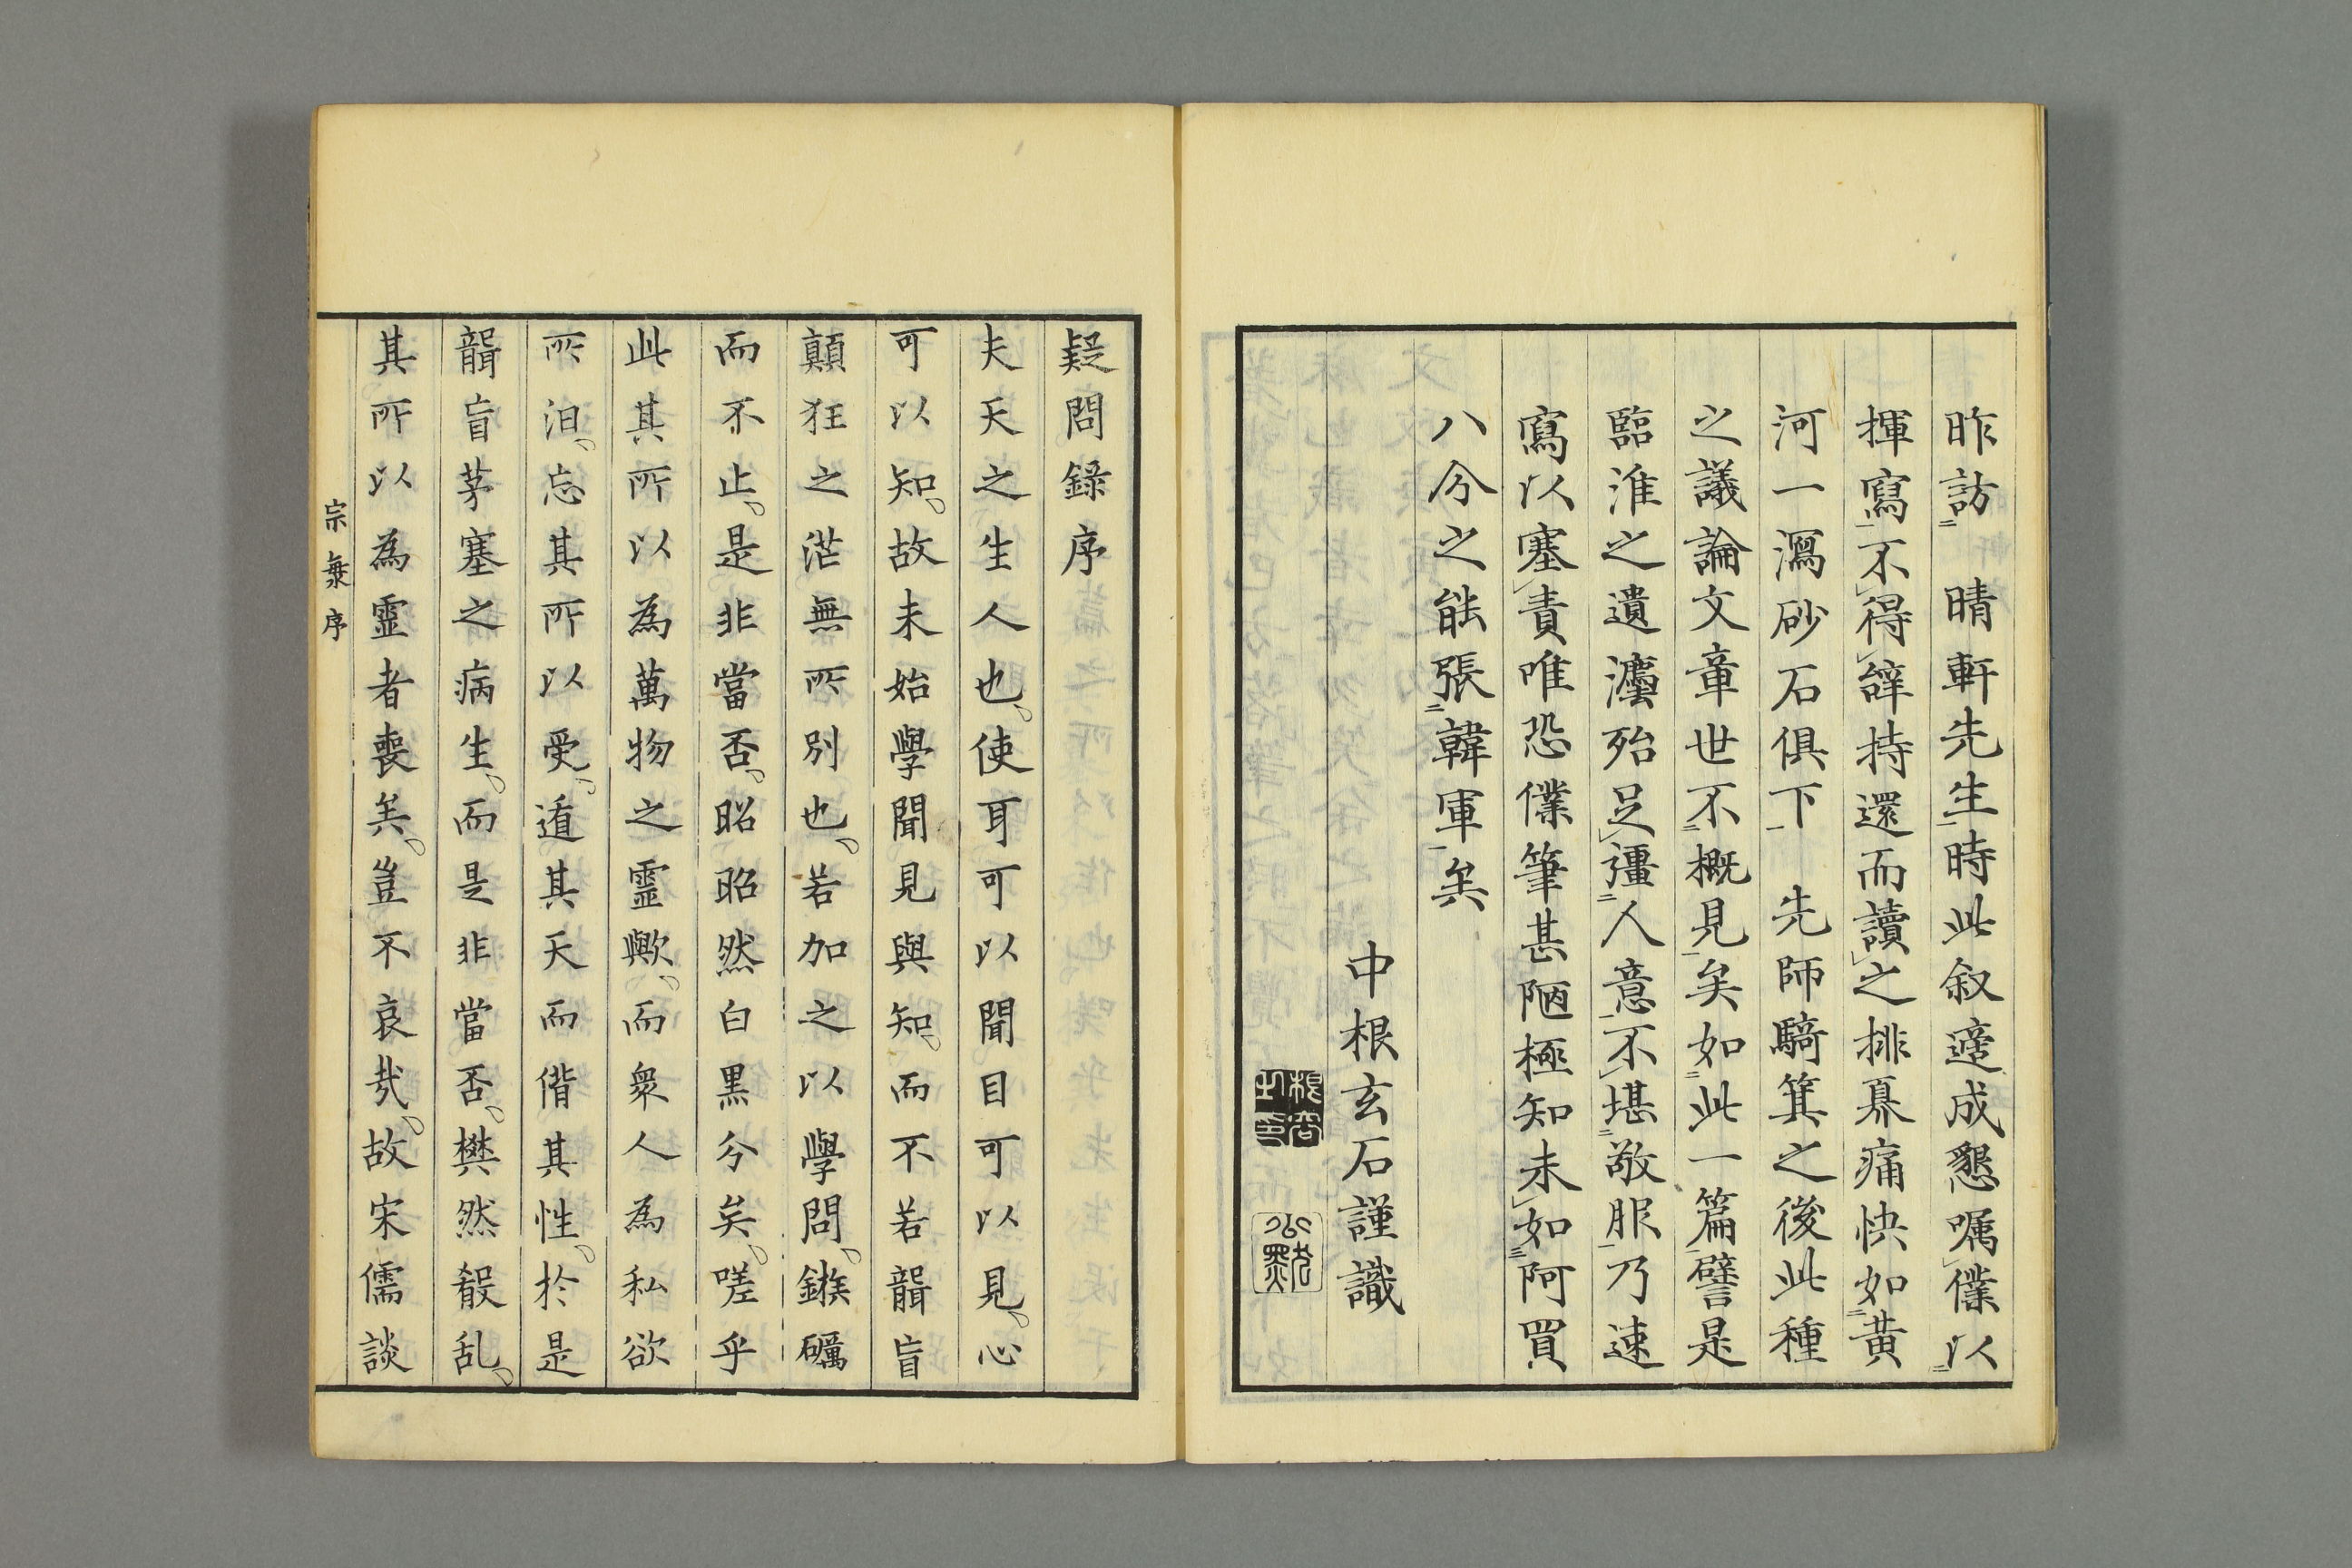 昨訪 晴軒先生時此叙適成懇嘱僕以
揮寫不得辭持還而讀之排奡痛快如黄
河一瀉砂石俱下 先師騎箕之後此種
之議論文章世不概見矣如此一篇譬是
臨淮之遺瀍殆足彊人意不堪敬服乃速
寫以塞責唯恐僕筆甚陋極知未如阿買
八分之能張韓軍矣
中根玄石謹識
疑問録序
夫天之生人也使耳可以聞目可以見心
可以知故未始學聞見與知而不若聾盲
顛狂之茫無所別也若加之以學問鏃礪
而不止是非當否昭昭然白黒分矣嗟乎
此其所以為萬物之靈歟而衆人為私欲
所汨忘其所以受遁其天而偝其性於是
聾盲茅塞之病生而是非當否樊然殽乱
其所以為靈者喪矣豈不哀哉故宋儒談
宗𣠽序